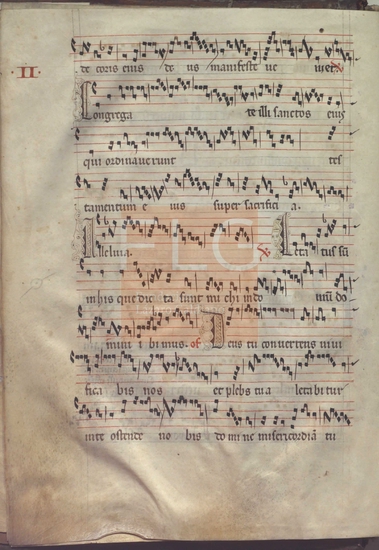 II
decoris eius de us manifeste ue niet
Congrega te illi sanctos eius
qui ordinauerunt tes
tamentum e ius super sacrifici a.
Alleluia. Leta tus sū
in his que dic ta sunt mi chi in do mū do
mini i bimus. of Deus tu conuertens uiui
fica bis nos et plebs tua letabitur
in te ostende no bis domine misericordiā tu